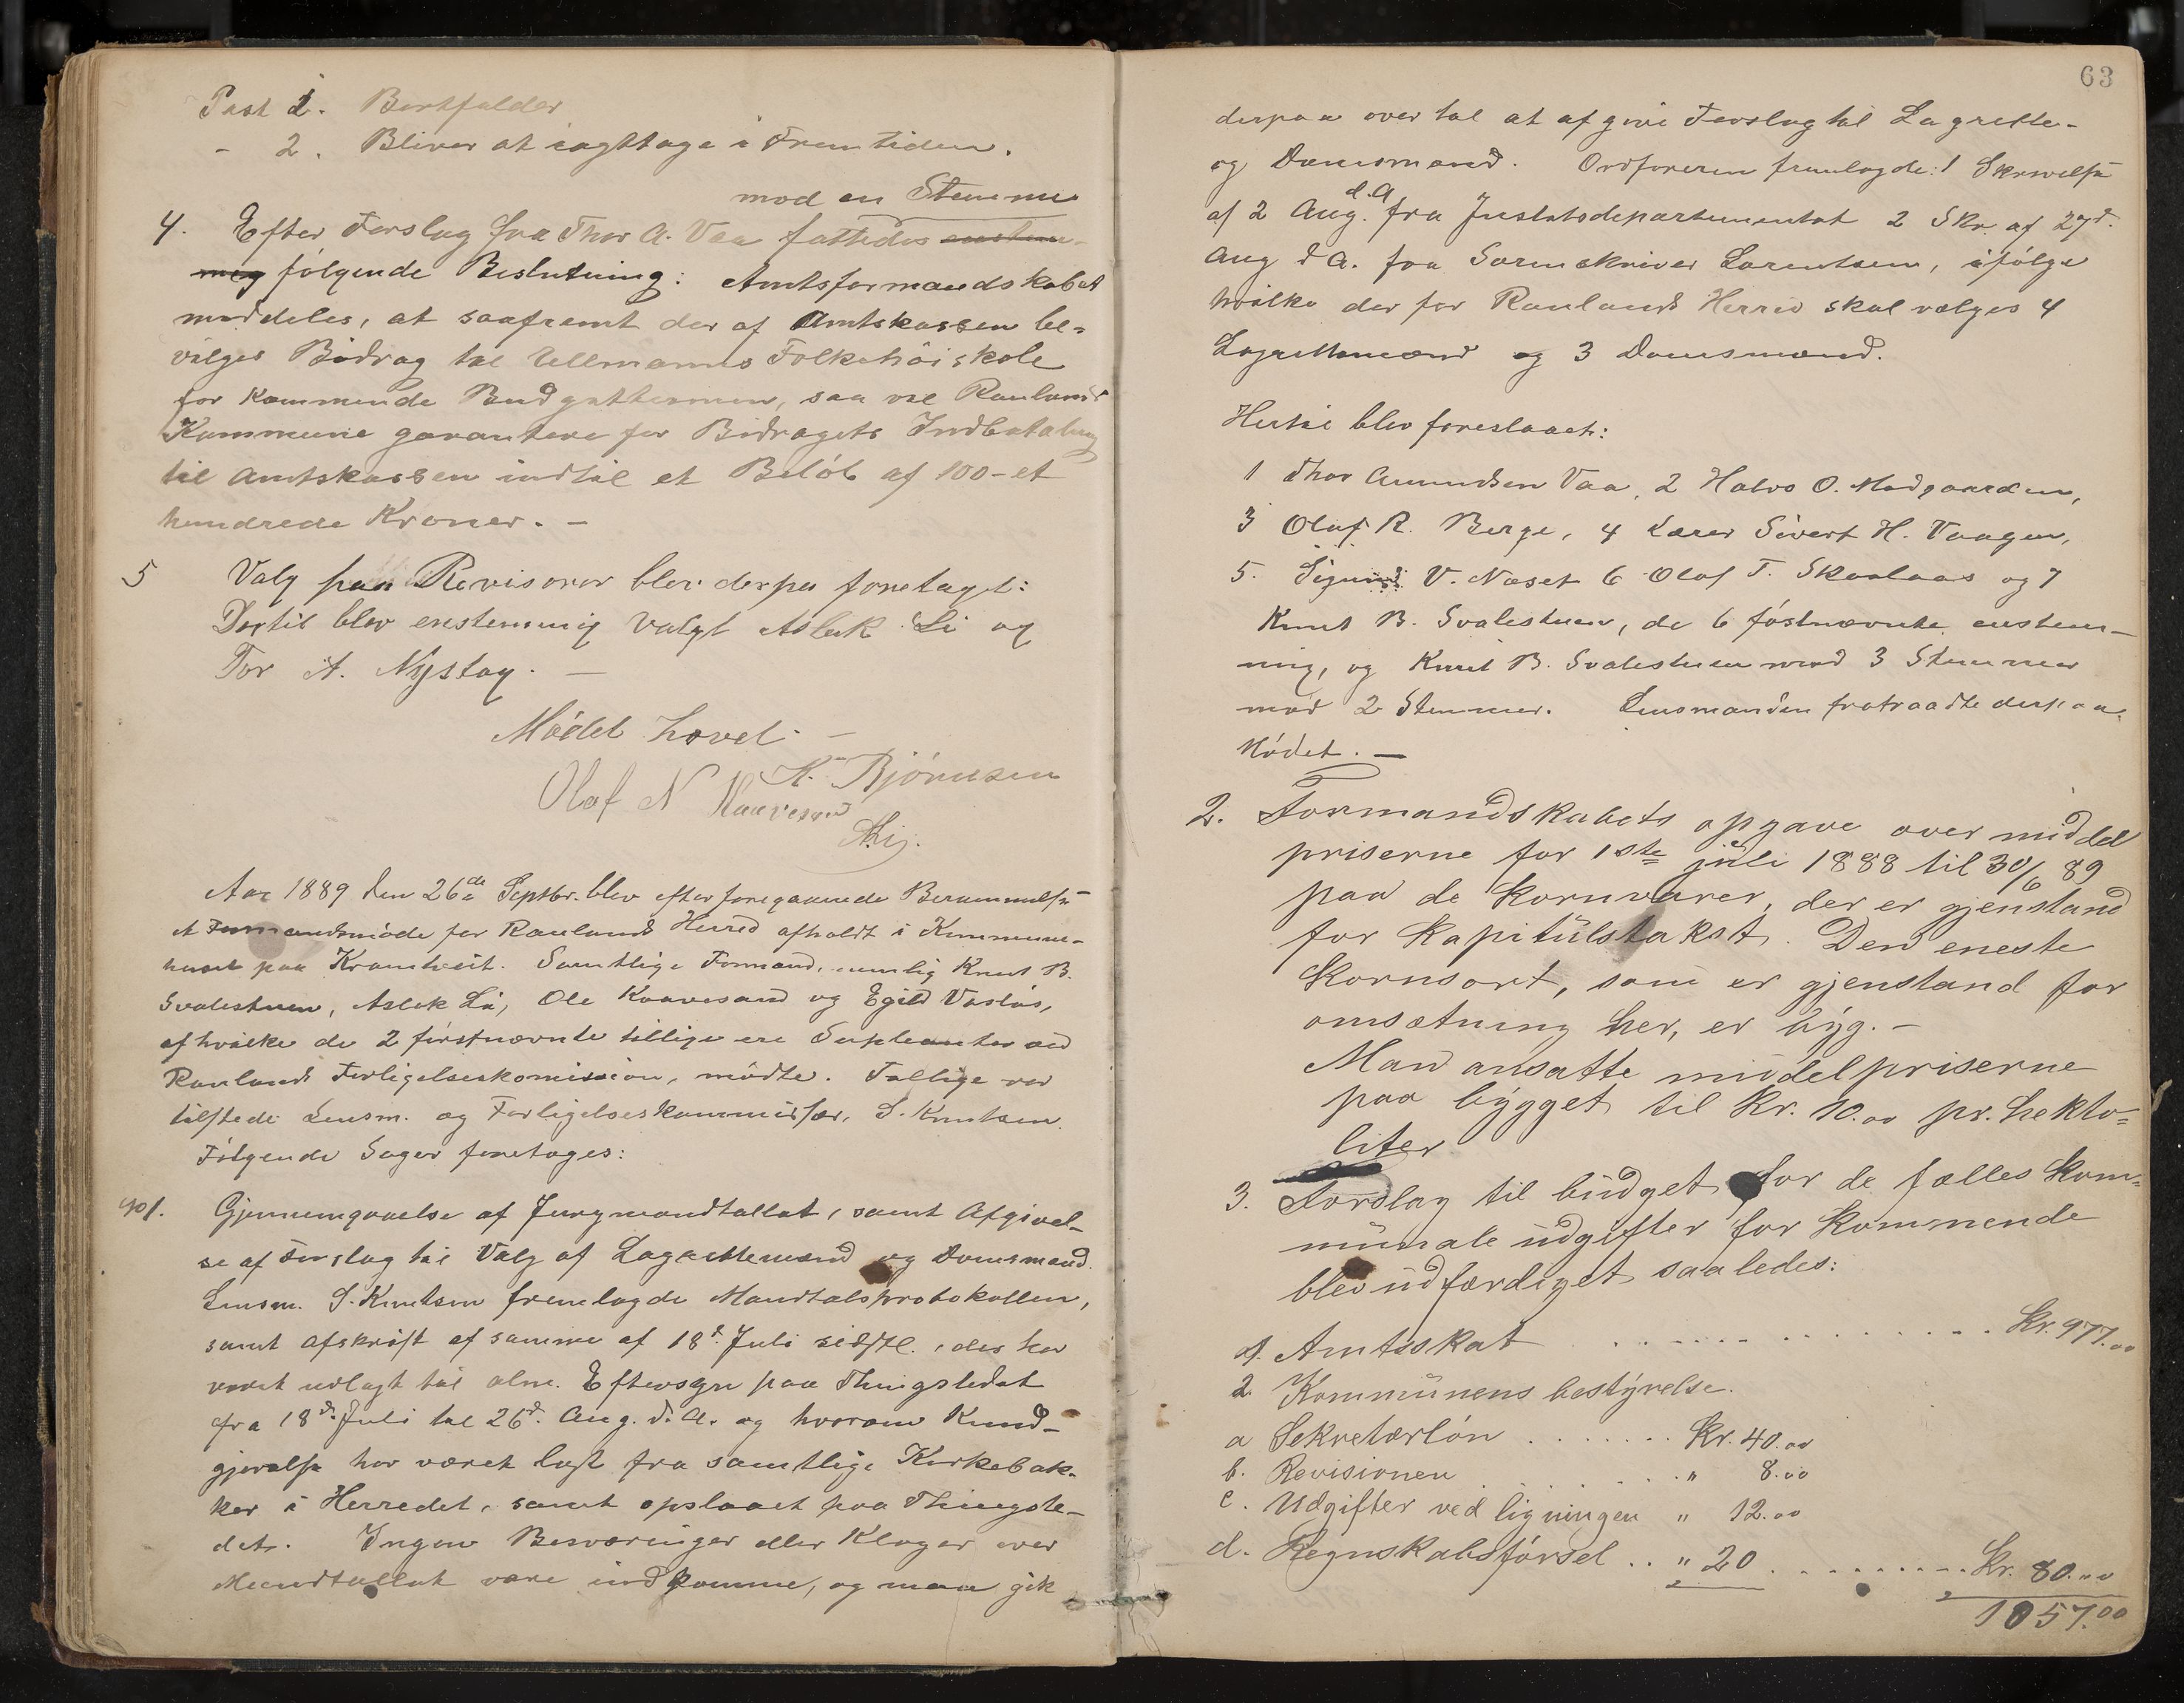 Post 1. Bortfalder
- 2. Bliver at iagttage i Fremtiden.
mod en Stemme
4. Efter Forslag fra Thor A. Vaa fattedes enstem-
mig følgende Beslutning: Amtsformandskabet
meddeles, at saafremt der af Amtskassen be-
vilges Bidrag til Ullmanns Folkehøiskole
for kommende Budgettermin, saa vil Raulands
Kommune garantere for Bidragets Indbetaling
til Amtskassen indtil et Beløb af 100 - et
hundrede Kroner. -
5 Valg paa Revisorer blev derpaa foretaget:
Dertil blev enstemmig valgt Aslak Li og
Tor A. Nystog. -
Mødet hævet. -
K. Bjørnsen
Olaf N Kaavesand
ALi.
Aar 1889 den 26de Septbr. blev efter foregaaende Berammelse
et Formandsmøde for Raulands Herred afholdt i Kommune-
huset paa Kromviit. Samtlige Formænd, nemlig Knut B.
Svalestuen, Aslek Li, Ole Kaavesand og Egild Vasløs,
af hvilke de 2 førstnævnte tillige ere Supleanter ved
Raulands Forligelseskomission, mødte. Tillige var
tilstede Lensm. og Forligelseskommissær, S. Knutsen.
Følgende Sager foretoges:
No 1. Gjennemgaaelse af Jurymandtallet, samt Afgivel-
se af Forslag til Valg af Lagrettemænd og Domsmænd.
Lensm. S. Knutsen fremlagde Mandtalsprotokollen,
samt Afskrift af samme af 18d. Juli sidstl., der har
været udlagt til alm. Eftersyn paa Thingstedet
fra 18d. Juli til 26d. Aug. d. A. og hvorom Kund-
gjørelse har været læst fra samtlige Kirkebak-
ker i Herredet, samt opslaaet paa Thingste-
det. Ingen Besværinger eller Klager over
Mandtallet vare indkomne, og man gik
63
derpaa over til at afgive Forslag til Lagrette-
og Domsmænd. Ordføreren fremlagde: 1 Skrivelse
d. A
af 2 Aug. fra Justitsdepartementet 2 Skr. af 27d.
Aug d A. fra Sorenskriver Lorentsen, ifølge
hvilke der for Raulands Herred skal vælges 4
Lagrettemænd og 3 Domsmænd.
Hertil blev foreslaaet:
1 Thor Amundsen Vaa, 2 Halvo O. Modgaarden,
3 Olaf R. Berge, 4 Lærer Sivert H. Vaagen,
5. Sigurd V. Næset 6 Olaf T. Skaalaas og 7
Knut B. Svalestuen, de 6 føstnævnte enstem-
mig, og Knut B. Svalestuen med 3 Stemmer
mod 2 Stemmer. Lensmanden fratraadte derpaa
Mødet. -
2. Formandskabets opgave over middel
priserne for 1ste juli 1888 til 30/6 89
paa de kornvarer, der er gjenstand
for kapitulstakst. Den eneste
kornsort, som er gjenstand for
omsætning her, er byg. -
Man ansatte middelpriserne
paa bygget til kr. 10.00 pr. hekto=
liter
3. Forslag til budget for de fælles kom=
munale udgifter for kommende
blev udfærdiget saaledes:
1. Amtsskat . . . . . . . . . . Kr. 977.00
2. Kommunens bestyrelse.
a Sekretærløn . . . . . . . Kr. 40.00
b. Revisionen . . . . " 8.00
c. Udgifter ved ligningen " 12.00
d. Regnskabsførsel . . " 20 . . . . . . . . Kr. 80.00
1057.00